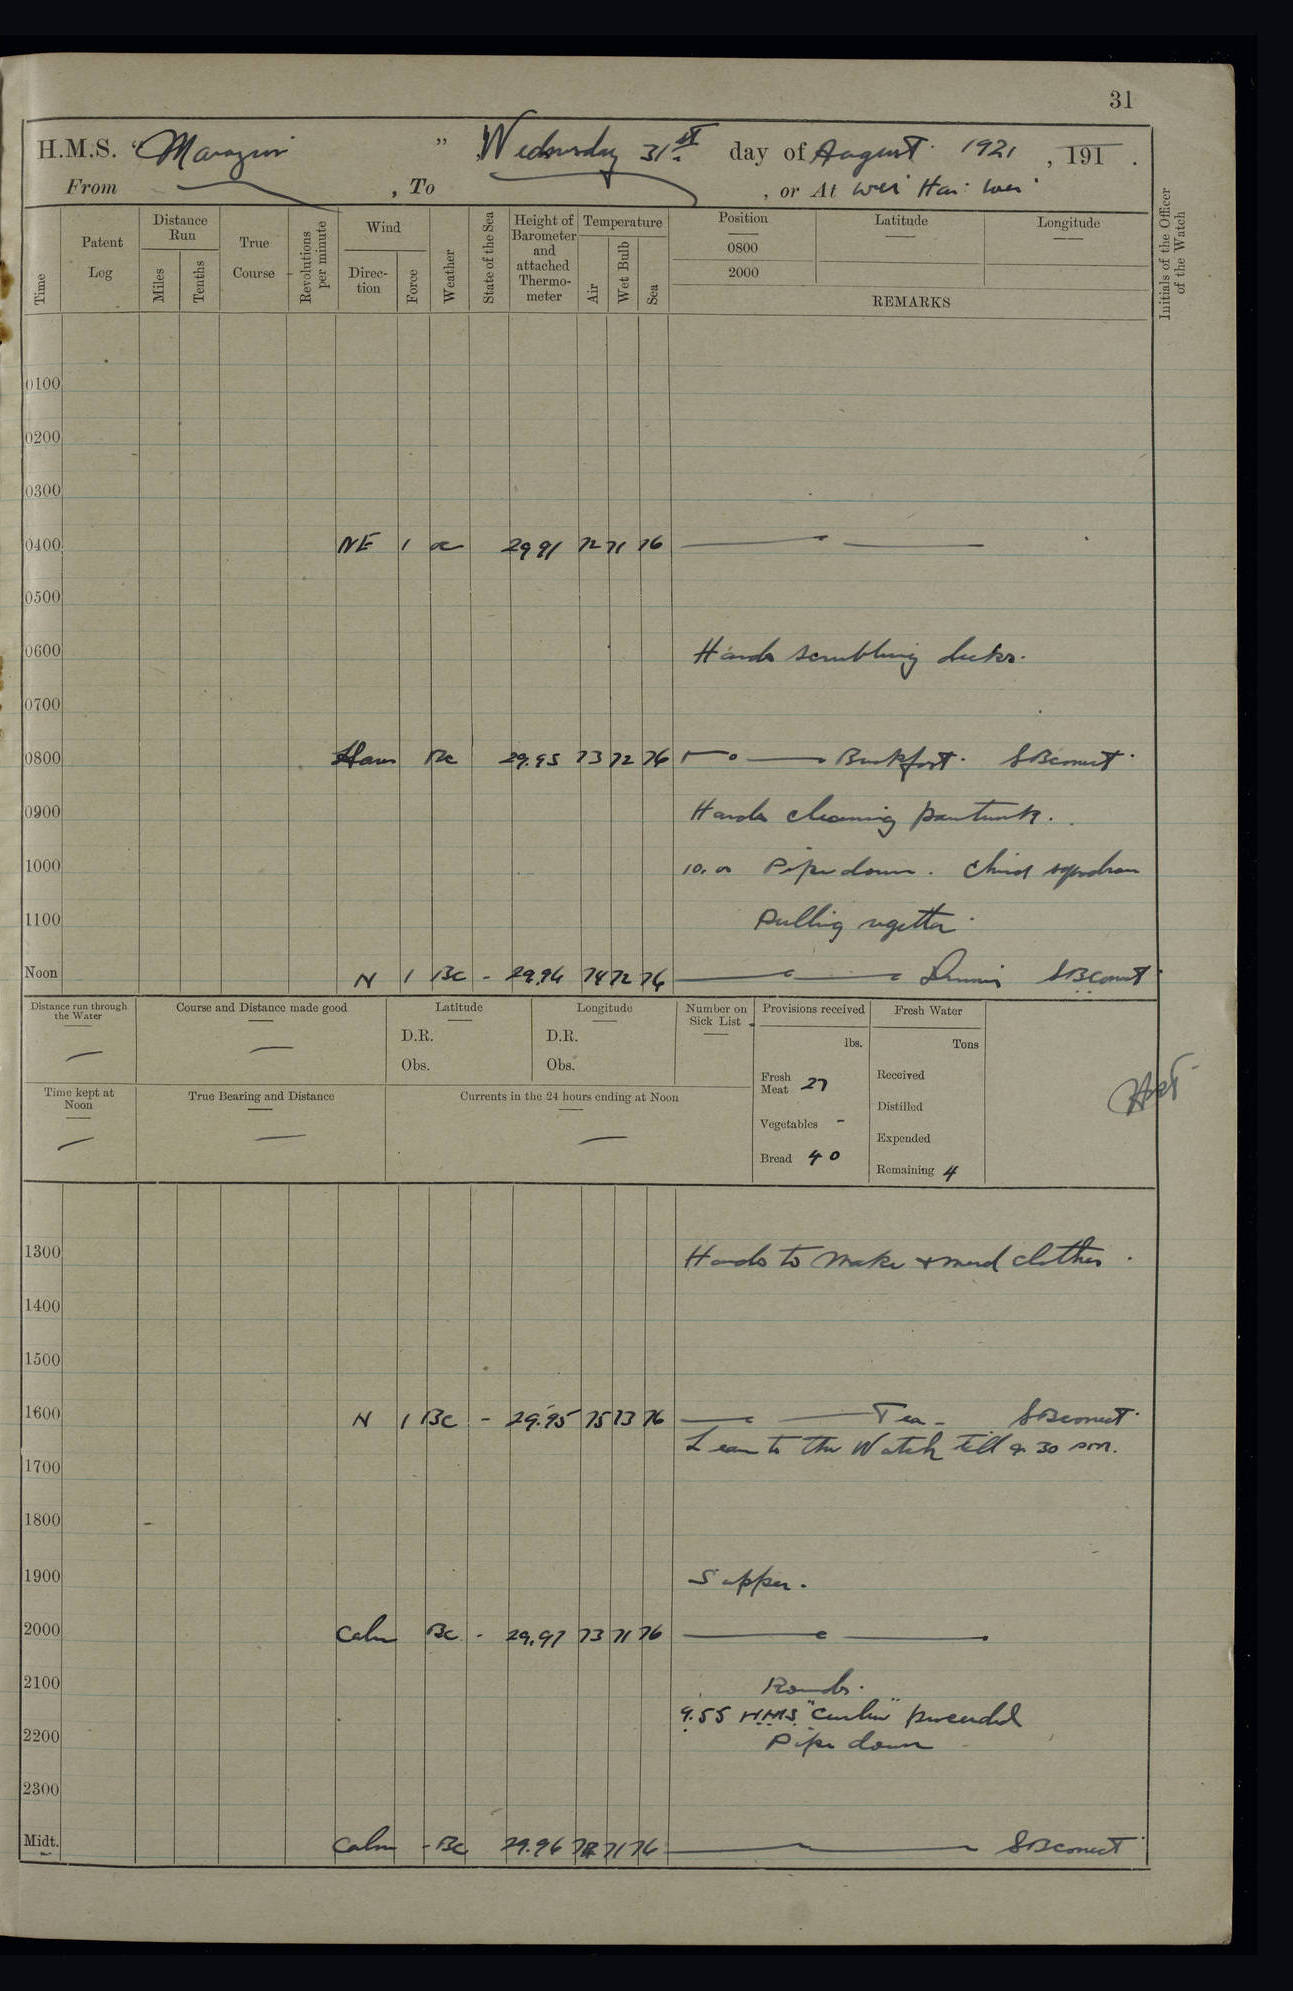 31
H.M.S. "Marazion" Wednesday 31st day of August 1921, 191 .
From , To , or At Wei Hai Wei
Time
Patent Log
Distance Run
Miles
Tenths
True Course
Revolutions per minute
Wind
Direction
Force
Weather
State of the Sea
Height of Barometer and attached Thermometer
Temperature
Air
Wet Bulb
Sea
Position
0800
2000
Latitude
Longitude
REMARKS
Initials of the Officer of the Watch
0100
0200
0300
0400 NE 1 29 91 72 71 76
0500
0600 Hands scrubbling decks.
0700
0800 Bc 29.95 73 72 76 Breakfast. SBConnet
0900 Hands cleaning paintwork.
1000 10.00 Pipe down. China squadron
1100 Pulling regatta.
Noon N 1 Bc - 29.96 74 72 76 Dinner SBConnet
Distance run through the Water
Course and Distance made good
Latitude
D.R.
Obs.
Longitude
D.R.
Obs.
Number on Sick List
Provisions received
lbs.
Fresh Meat 27
Vegetables -
Bread 40
Fresh Water
Tons
Received
Distilled
Expended
Remaining 4
Time kept at Noon
True Bearing and Distance
Currents in the 24 hours ending at Noon
1300 Hands to make & mend clothes.
1400
1500
1600 N 1 Bc - 29.95 75 73 76 Tea - SBConnet
Leave to the Watch till 9.30 pm.
1700
1800
1900 Supper.
2000 Calm Bc - 29.97 73 71 76
2100 Rounds.
9.55 H.M.S. "Curlew" proceeded
2200 Pipe down
2300
Midt. Calm - Bc 29.96 71 76 SBConnet